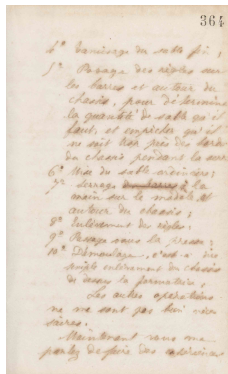 364
4° Tamisage du sable fin;
5° Posage des règles sur
les barres et autour du
chassis, pour déterminer
la quantité de sable qu'il
faut, et empêcher qu'il
ne soit trop près des bords
du chassis pendant la
6° Mise du sable
7° Serrage à la
main sur le modèle et
autour du chassis;
8° Enlèvement des règles.
9° Passage sous la presse;
10° Démoulage, c'est-à-dire
enlèvement du chassis
de dessus la
Les autres opérations
ne me sont pas
Maintenant vous me
parlez de faire des expériences